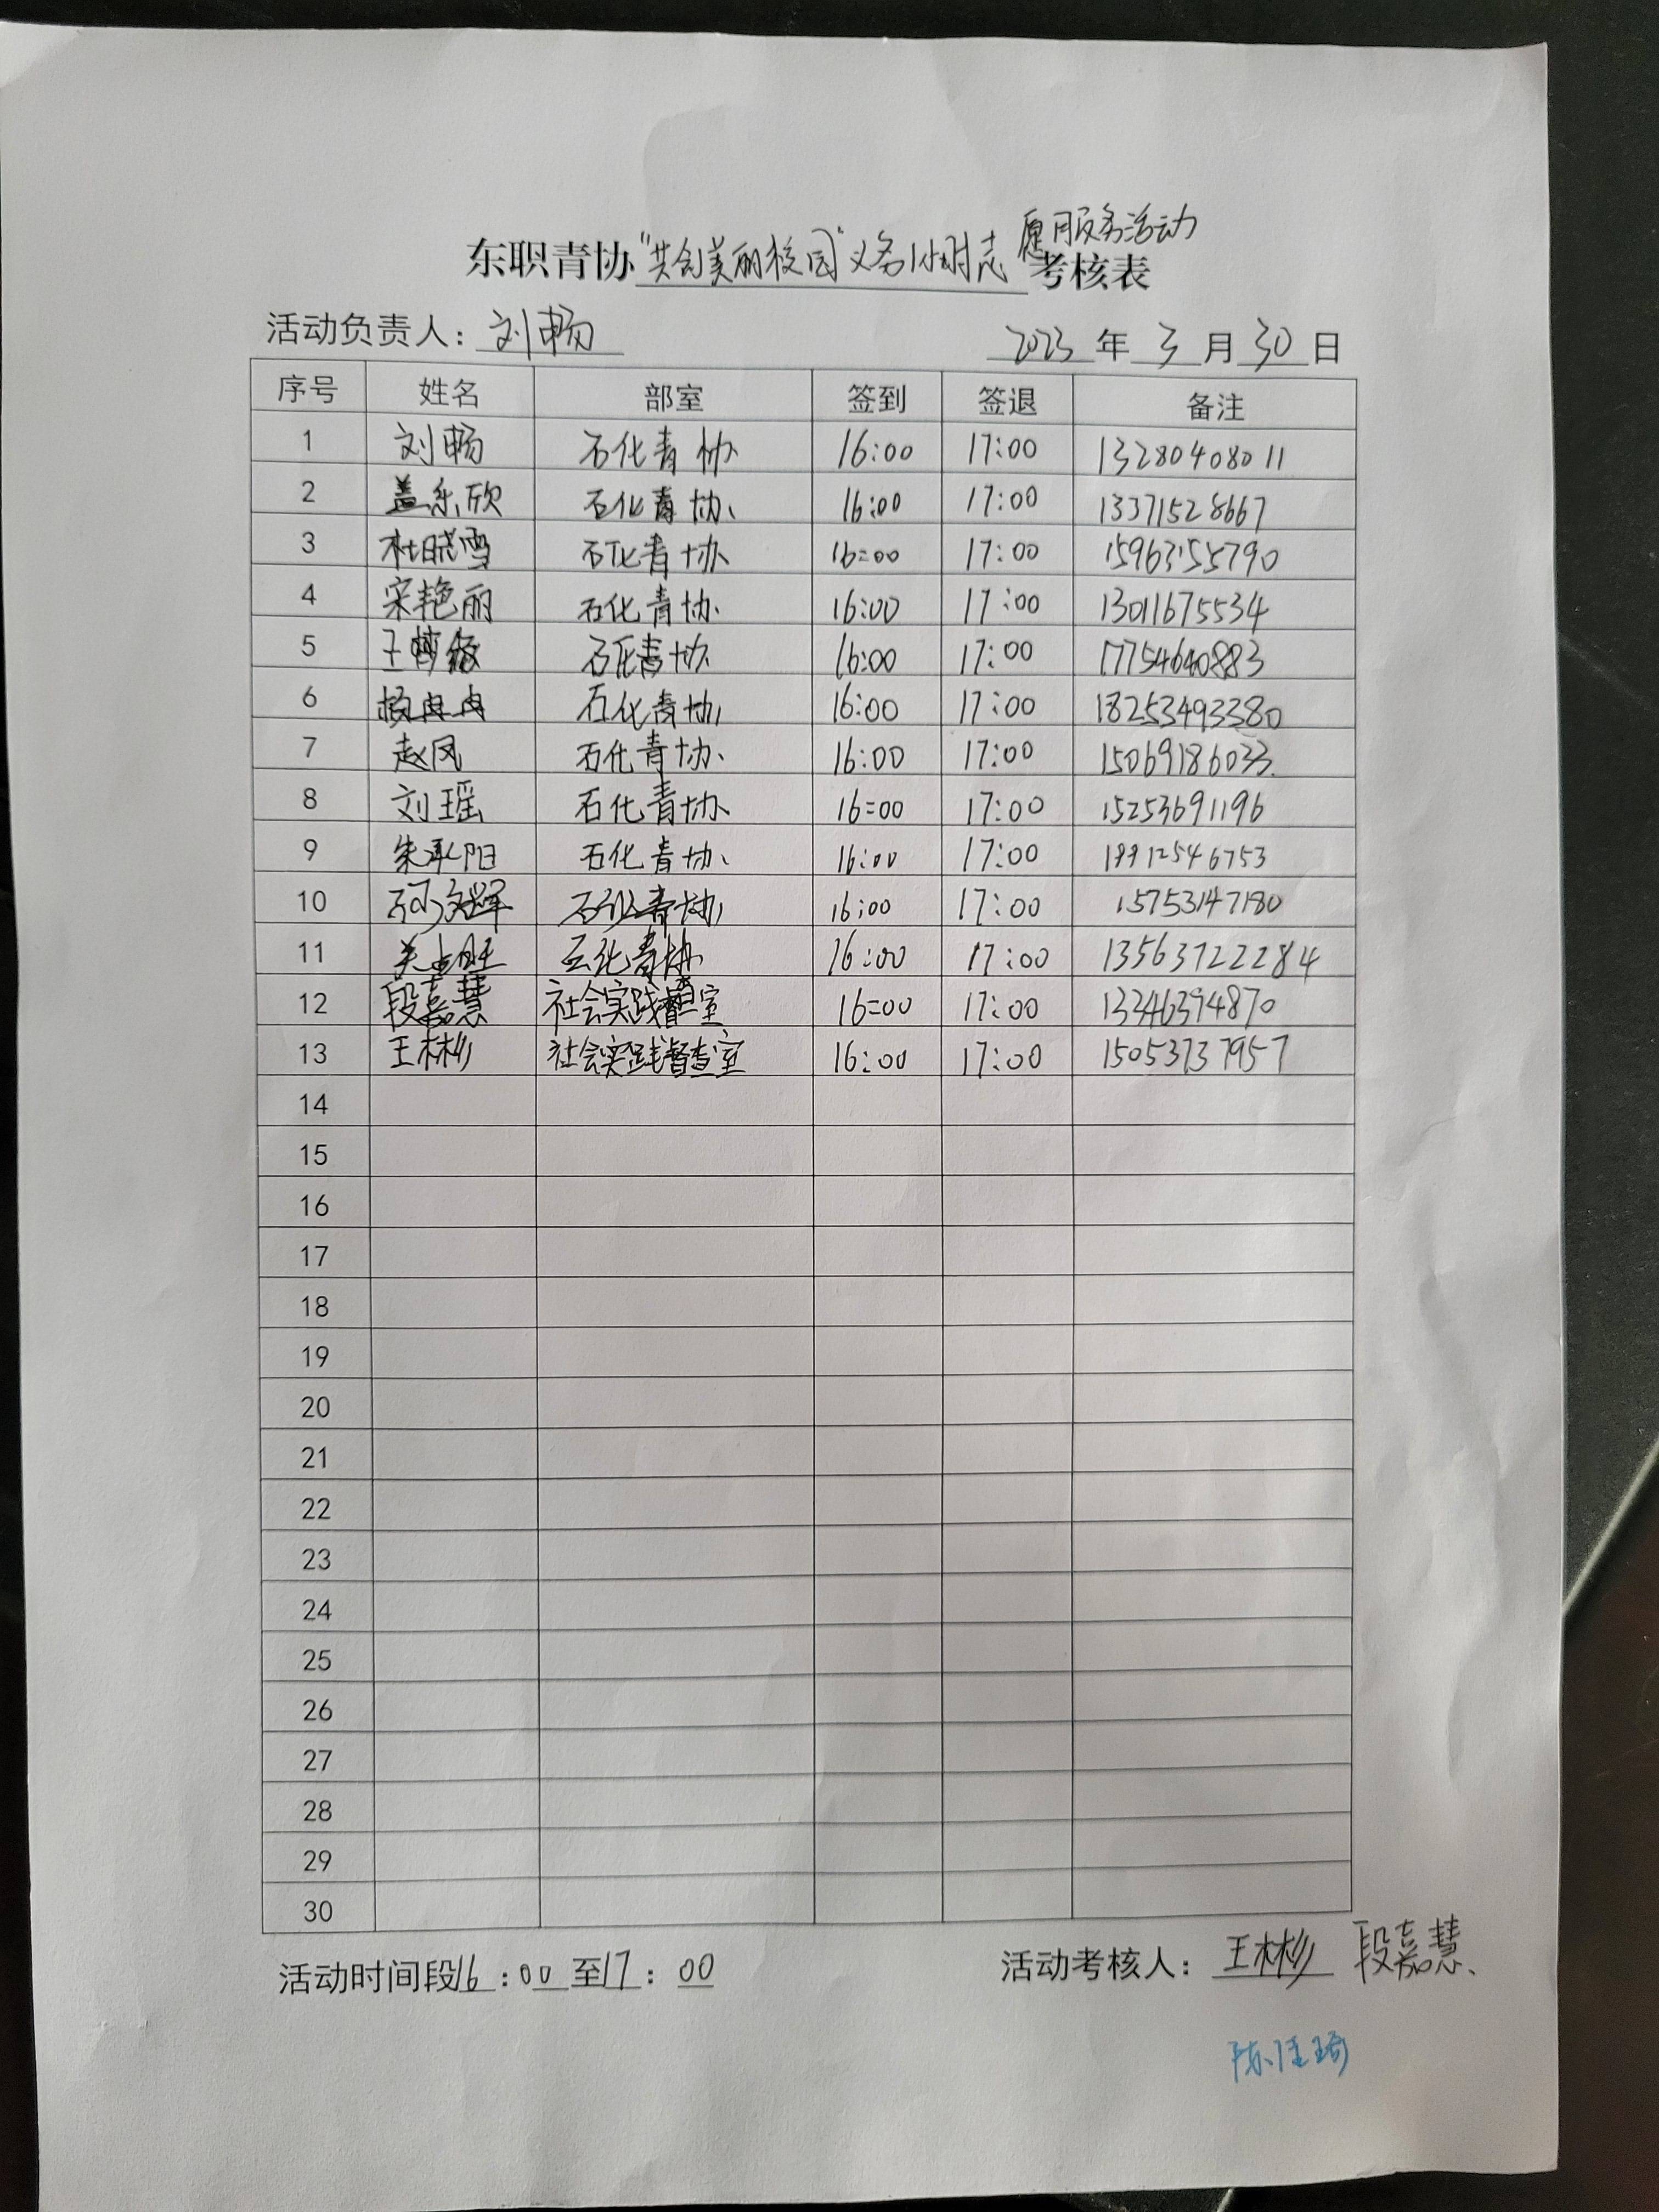 东职青协"共创美丽校园"义务1小时志愿服务活动考核表
活动负责人：刘畅 2023年3月30日
序号 姓名 部室 签到 签退 备注
1 刘畅 石化青协 16:00 17:00 13280408011
2 盖乐欣 石化青协 16:00 17:00 13371528667
3 杜晓雪 石化青协 16:00 17:00 15963155790
4 宋艳丽 石化青协 16:00 17:00 13011675534
5 石化青协 16:00 17:00 17754640883
6 杨冉冉 石化青协 16:00 17:00 18253493380
7 赵风 石化青协 16:00 17:00 15069186033
8 刘瑶 石化青协 16:00 17:00 15253691196
9 石化青协 16:00 17:00
10 石化青协 16:00 17:00 15753147180
11 石化青协 16:00 17:00 13563722284
12 段嘉慧 社会实践督查室 16:00 17:00 13346394870
13 王林彬 社会实践督查室 16:00 17:00 15053737957
14
15
16
17
18
19
20
21
22
23
24
25
26
27
28
29
30
活动时间段16:00至17:00 活动考核人：王林彬 段嘉慧
陈佳琦